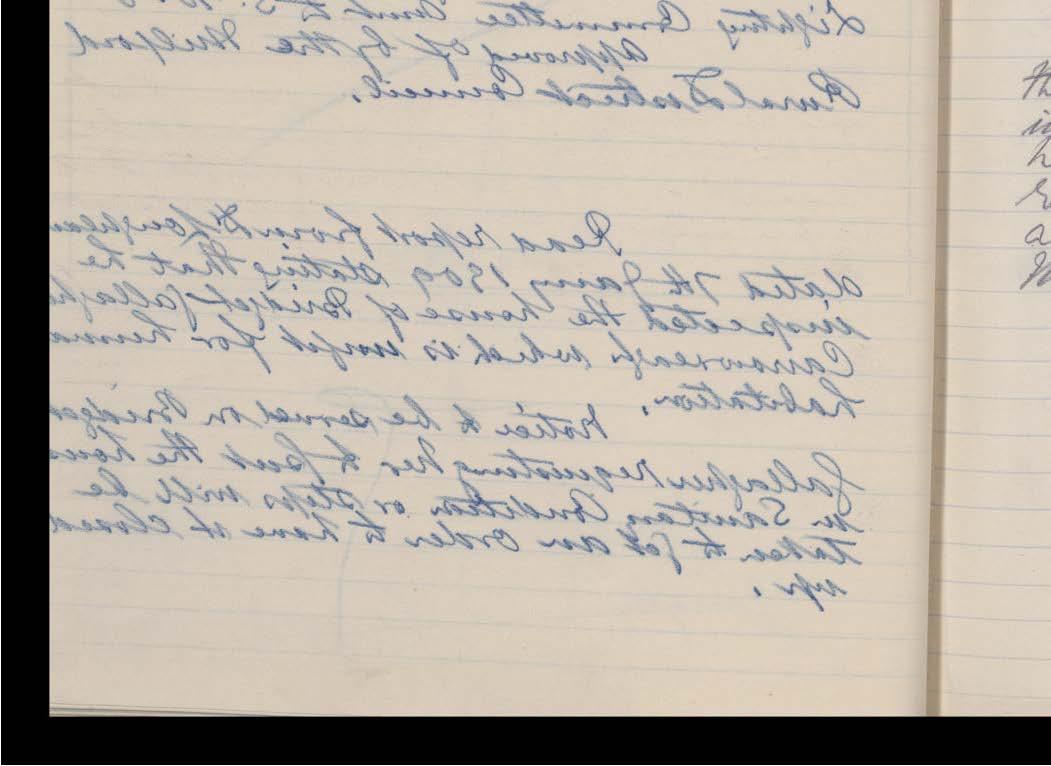 Lighting Committee and
approved of by the Milford
Rural District Council.
Read report from Dr Loughean
dated 7th Jany 1909 stating that he
inspected the house of Bridget Gallagh
Carrowreagh which is unfit for human
habitation.
Notice to be served on Bridget
Gallagher requesting her to put the hous
in Sanitary Condition or steps will be
taken to get an order to have it closed
up.
th
in
h
a